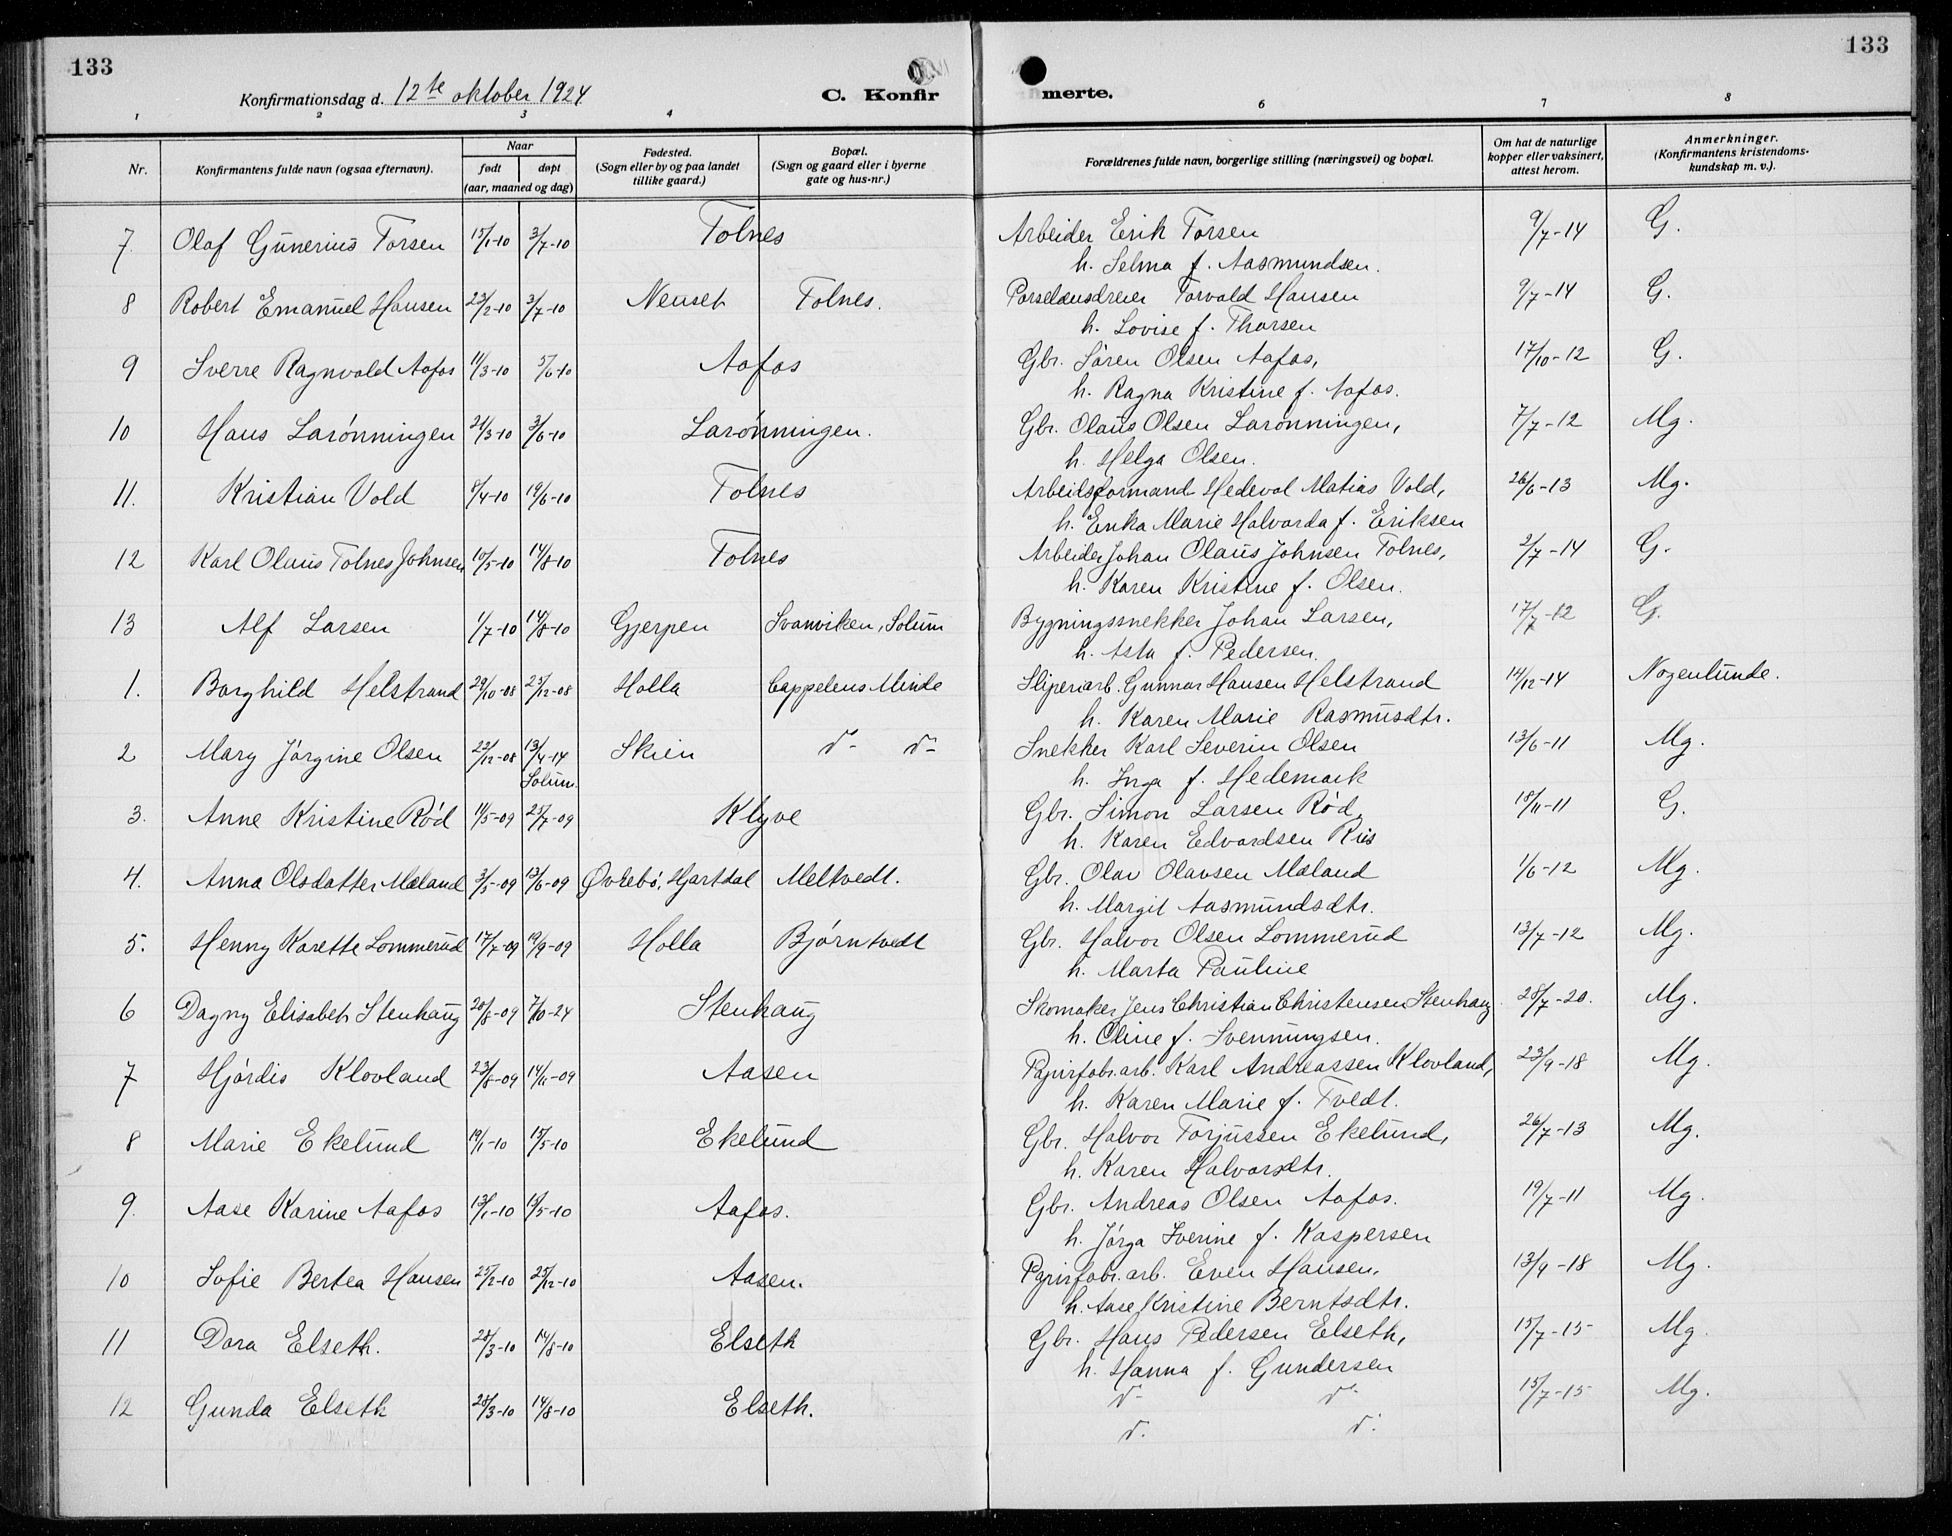 133
133
Konfirmationsdag d. 12te oktober 1924
C. Konfir
merte.
1 2 3 4 6 7 8
Nr.
Konfirmantens fulde navn (ogsaa efternavn).
Naar
født døpt
(aar, maaned og dag)
Fødested.
(Sogn eller by og paa landet
tillike gaard.)
Bopæl.
(Sogn og gaard eller i byerne
gate og hus-nr.)
Forældrenes fulde navn, borgerlige stilling (næringsvei) og bopæl.
Om hat de naturlige
kopper eller vaksinert,
attest herom.
Anmerkninger.
(Konfirmantens kristendoms-
kundskap m. v.).
7 Olaf Gunerius Torsen 15/1-10 3/7-10 Tolnes Arbeider Erik Torsen 9/7-14 G.
h. Selma f. Aasmundsen.
8 Robert Emanuel Hansen 23/2-10 3/7-10 Nenset Tolnes. Porselænsdreier Torvald Hansen 9/7-14 G.
h. Lovise f. Thorsen
9 Sverre Ragnvald Aafos 11/3-10 5/6-10 Aafos Gbr. Søren Olsen Aafos, 17/10-12 G.
h. Ragna Kristine f. Aafos.
10 Hans Larønningen 21/3-10 3/6-10 Larønningen. Gbr. Olaus Olsen Larønningen, 7/7-12 Mg.
h. Helga Olsen.
11. Kristian Vold 8/4-10 19/6-10 Tolnes Arbeidsformand Hedevol Matias Vold, 26/6-13 Mg.
h. Erika Marie Halvorda f. Eriksen
12 Karl Olaus Tolnes Johnsen 10/5-10 14/8-10 Tolnes Arbeider Johan Olaus Johnsen Tolnes, 2/7-14 G.
h. Karen Kristine f. Olsen.
13 Alf Larsen 1/7-10 14/8-10 Gjerpen Svanviken, Solum Bygningssnekker Johan Larsen, 17/7-12 G.
h. Asta f. Pedersen.
1. Borghild Helstrand 29/10-08 25/12-08 Holla Cappelens Minde Sliperiarb. Gunnar Hansen Helstrand 14/12-14 Nogenlunde.
h. Karen Marie Rasmusdtr.
2 Mary Jørgine Olsen 22/12-08 13/4-14 Skien d- d- Snekker Karl Severin Olsen 13/6-11 Mg.
Solum
h. Inga f. Hedemark
3. Anne Kristine Rød 11/5-09 25/7-09 Klyve Gbr. Simon Larsen Rød, 18/11-11 G.
h. Karen Edvardsen Riis
4. Anna Olsdatter Mæland 3/5-09 13/6-09 Øvrebø, Hjartdal Meltvedt. Gbr. Olav Olavsen Mæland 1/6-12 Mg.
h. Margit Aasmundsdtr.
5. Henny Karette Lommerud 17/7-09 19/9-09 Holla Bjørntvedt Gbr. Halvor Olsen Lommerud 13/7-12 Mg.
h. Marta Pauline
6 Dagny Elisabet Stenhaug 20/8-09 7/10-24 Stenhaug Skomaker Jens Christian Christensen Stenhaug. 28/7-20. Mg.
h. Oline f. Svenningsen.
7 Hjørdis Klovland 23/8-09 14/11-09 Aasen Papirfabr.arb. Karl Andreassen Klovland, 23/9-18 Mg.
h. Karen Marie f. Tvedt.
8 Marie Ekelund 19/1-10 15/5-10 Ekelund Gbr. Halvor Torjussen Ekelund, 26/7-13 Mg.
h. Karen Halvorsdtr.
9. Aase Karine Aafos 13/1-10 16/5-10 Aafos. Gbr. Andreas Olsen Aafos. 19/7-11 Mg.
h. Jørga Sverine f. Kaspersen
10 Sofie Bertea Hansen 25/2-10 25/12-10 Aasen. Papirfabr.arb. Even Hansen, 13/9-18 Mg.
h. Aase Kristine Berntsdtr.
11 Dora Elseth. 28/3-10 14/8-10 Elseth Gbr. Hans Pedersen Elseth, 15/7-15 Mg.
h. Hanna f. Gundersen
12 Gunda Elseth 28/3-10 14/8-10 Elseth. d- d- 15/7-15 Mg.
d. d.